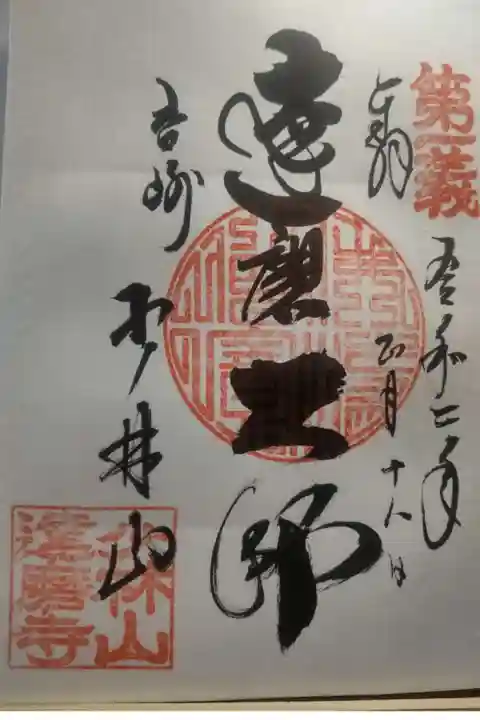 第一義
令和二年
正月十八日
達磨大師
高崎
少林山
少林山
達磨寺